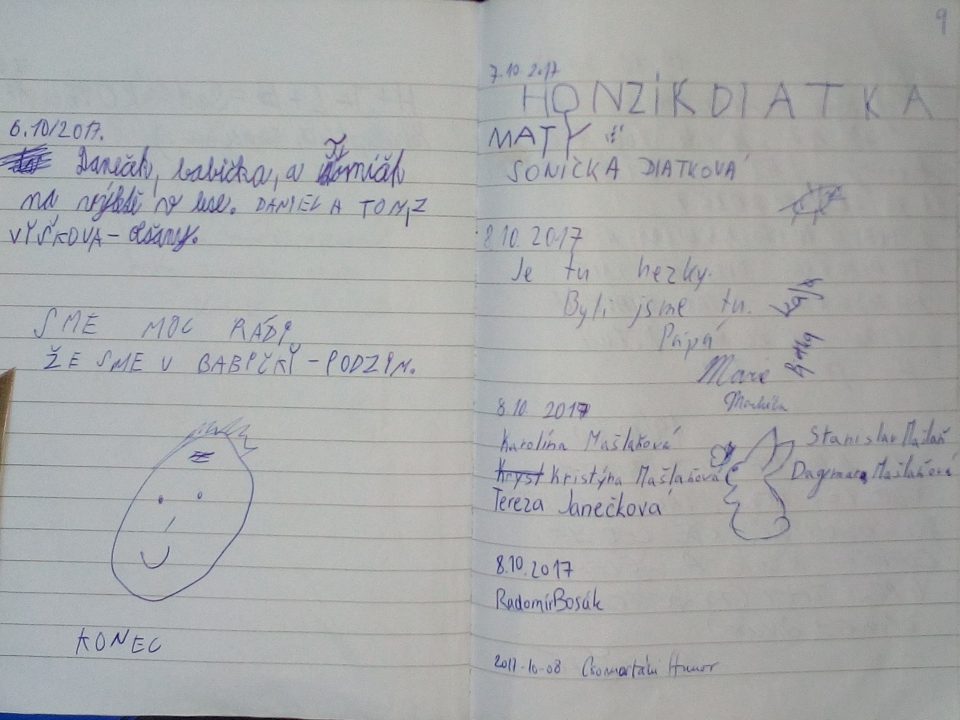 6.10/2017.
Daneček, babička, a Tomíček
na výletě v lese. DANIEL A TOM, Z
VÝŠKOVA - Olšany.
SME MOC RÁDI
ŽE SME U BABIČKY - PODZIM.
KONEC
9
7.10.2017
HONZÍK DIATKA
MATY
SONIČKA DIATKOVÁ
8.10.2017
Je tu hezky.
Byli jsme tu.
Pápá
Marie
8.10.2017
Karolína Mašlaňová
Kristýna Mašlaňová
Tereza Janečková
Stanislav Mašlaň
Dagmara Mašlaňová
8.10.2017
Radomír Bosák
2017-10-08